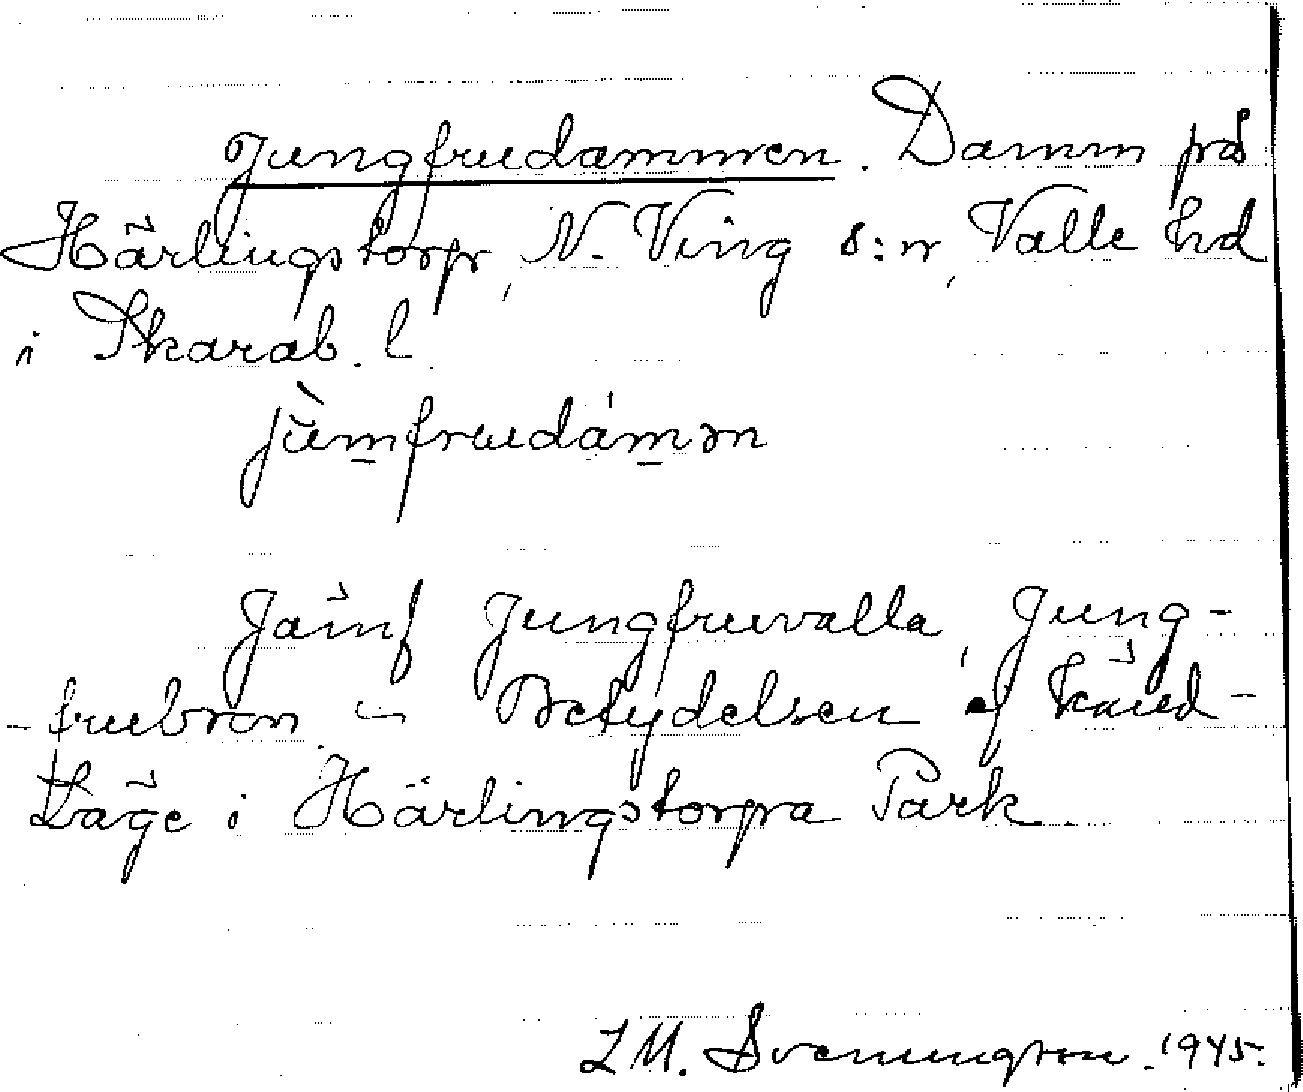 Jungfrudammen. Damm på
Härlingstorp, N. Ving s:n, Valle hd
i Skarab. l.
jùmfrudámən
Jämf Jungfruvalla, Jung-
-frubron – Betydelsen ej känd –
Läge i Härlingstorps Park.
L M. Svenungsson. 1945.